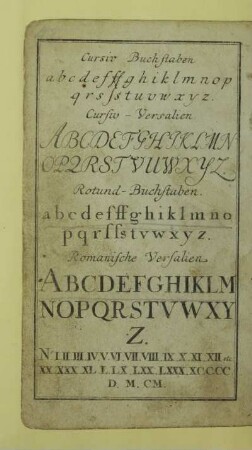 Cursiv Buchstaben
a b c d e f ff g h i k l m n o p
q r s ſ s t u v w x y z.
Cursiv - Versalien
A B C D E F G H I K L M N
O P Q R S T V U W X Y Z.
Rotund - Buchstaben.
a b c d e f ff g h i k l m n o
p q r ſ ſ s t v w x y z.
Romanische Versalien.
A B C D E F G H I K L M
N O P Q R S T V W X Y
Z.
N° I. II III. IV. V. VI VII. VIII. IX X. XI. XII etc
XX. XXX. XL. L. LX LXX LXXX. XC C C C
D. M. CM.